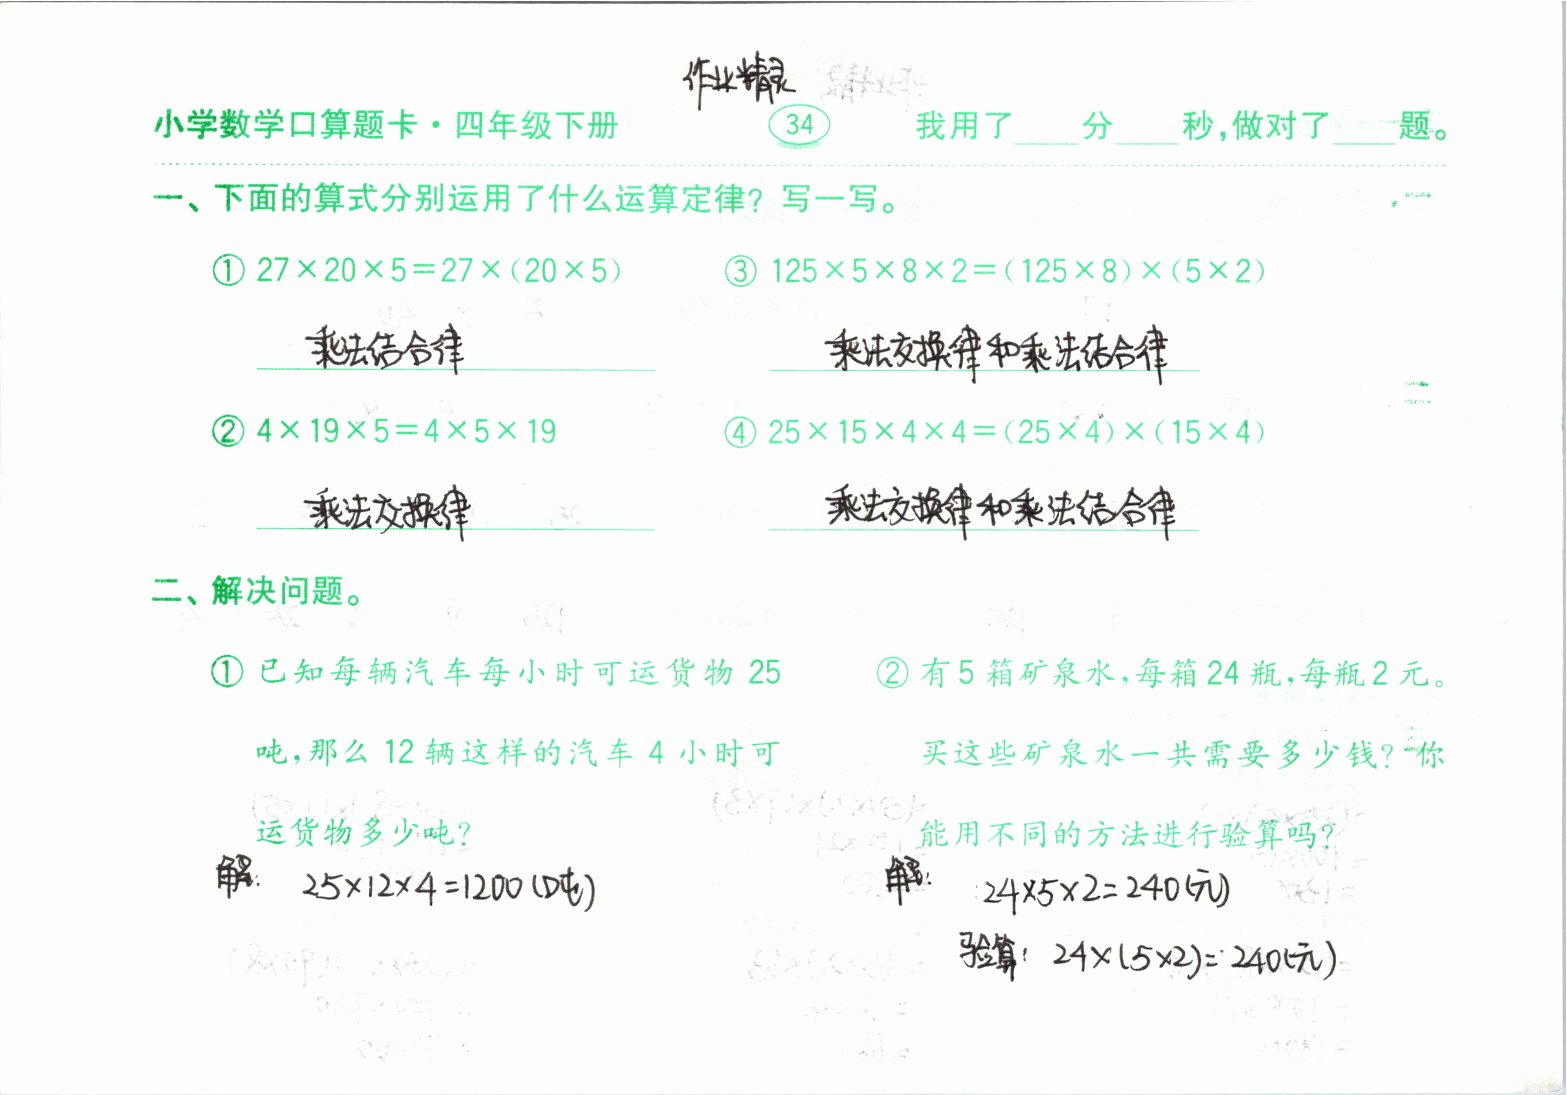 作业精灵
小学数学口算题卡·四年级下册 34 我用了____分____秒,做对了____题。
一、下面的算式分别运用了什么运算定律?写一写。
① 27×20×5=27×(20×5) ③ 125×5×8×2=(125×8)×(5×2)
乘法结合律 乘法交换律和乘法结合律
② 4×19×5=4×5×19 ④ 25×15×4×4=(25×4)×(15×4)
乘法交换律 乘法交换律和乘法结合律
二、解决问题。
① 已知每辆汽车每小时可运货物25
吨,那么12辆这样的汽车4小时可
运货物多少吨?
解: 25×12×4=1200(吨)
② 有5箱矿泉水,每箱24瓶,每瓶2元。
买这些矿泉水一共需要多少钱?你
能用不同的方法进行验算吗?
解: 24×5×2=240(元)
验算: 24×(5×2)=240(元)